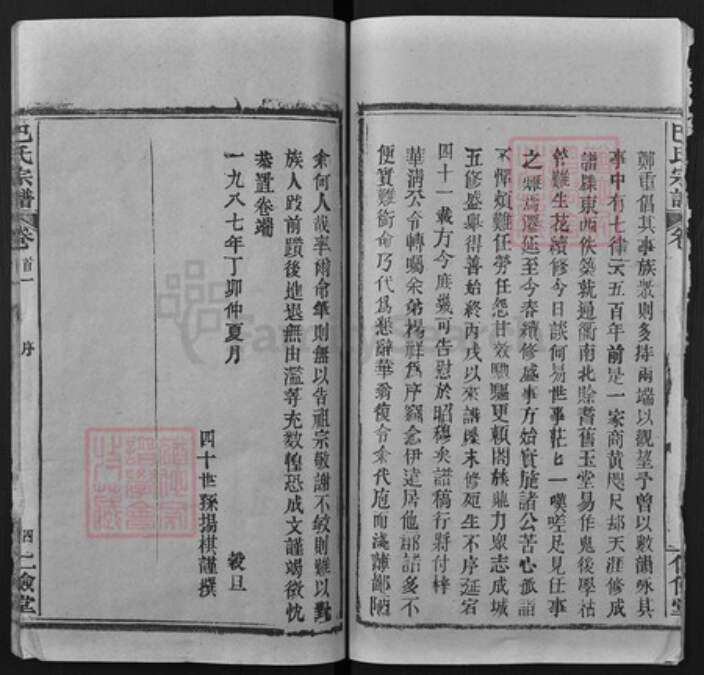 巴氏宗譜
卷
鄭重倡其事族眾則多持兩端以觀望予曾以數韻咏其
事中有七律云五百年前是一家商黃咫尺却天涯修成
譜牒東西佚築就通衢南北賒耆舊玉堂易作鬼後學枯
管難生花續修今日談何易世事茫匕一嘆嗟足見任事
之難焉遷延至今春續修盛事方始實施諸公苦心孤詣
不憚煩難任勞任怨甘效馳驅更賴闔族龍力眾志成城
五修盛舉得善始終丙戌以來譜牒未修苑生不序延宕
四十一載方今庶幾可告慰於昭穆矣譜稿行將付梓
華清公令轉囑余弟楊祥爲序竊念伊遠居他鄉諸多不
便實難銜命乃代爲懇辭華翁復令余代庖而淺陋鄙陋
余何人哉率爾命筆則無以告祖宗敬謝不敏則難以對
族人跋前躓後進退無由濫竽充數惶恐成文謹竭微忱
恭置卷端
一九八七年丁卯仲夏月
穀旦
四十世孫楊棋謹撰
巴氏宗譜
卷首一
序
四
仁儉堂
FamilySearch